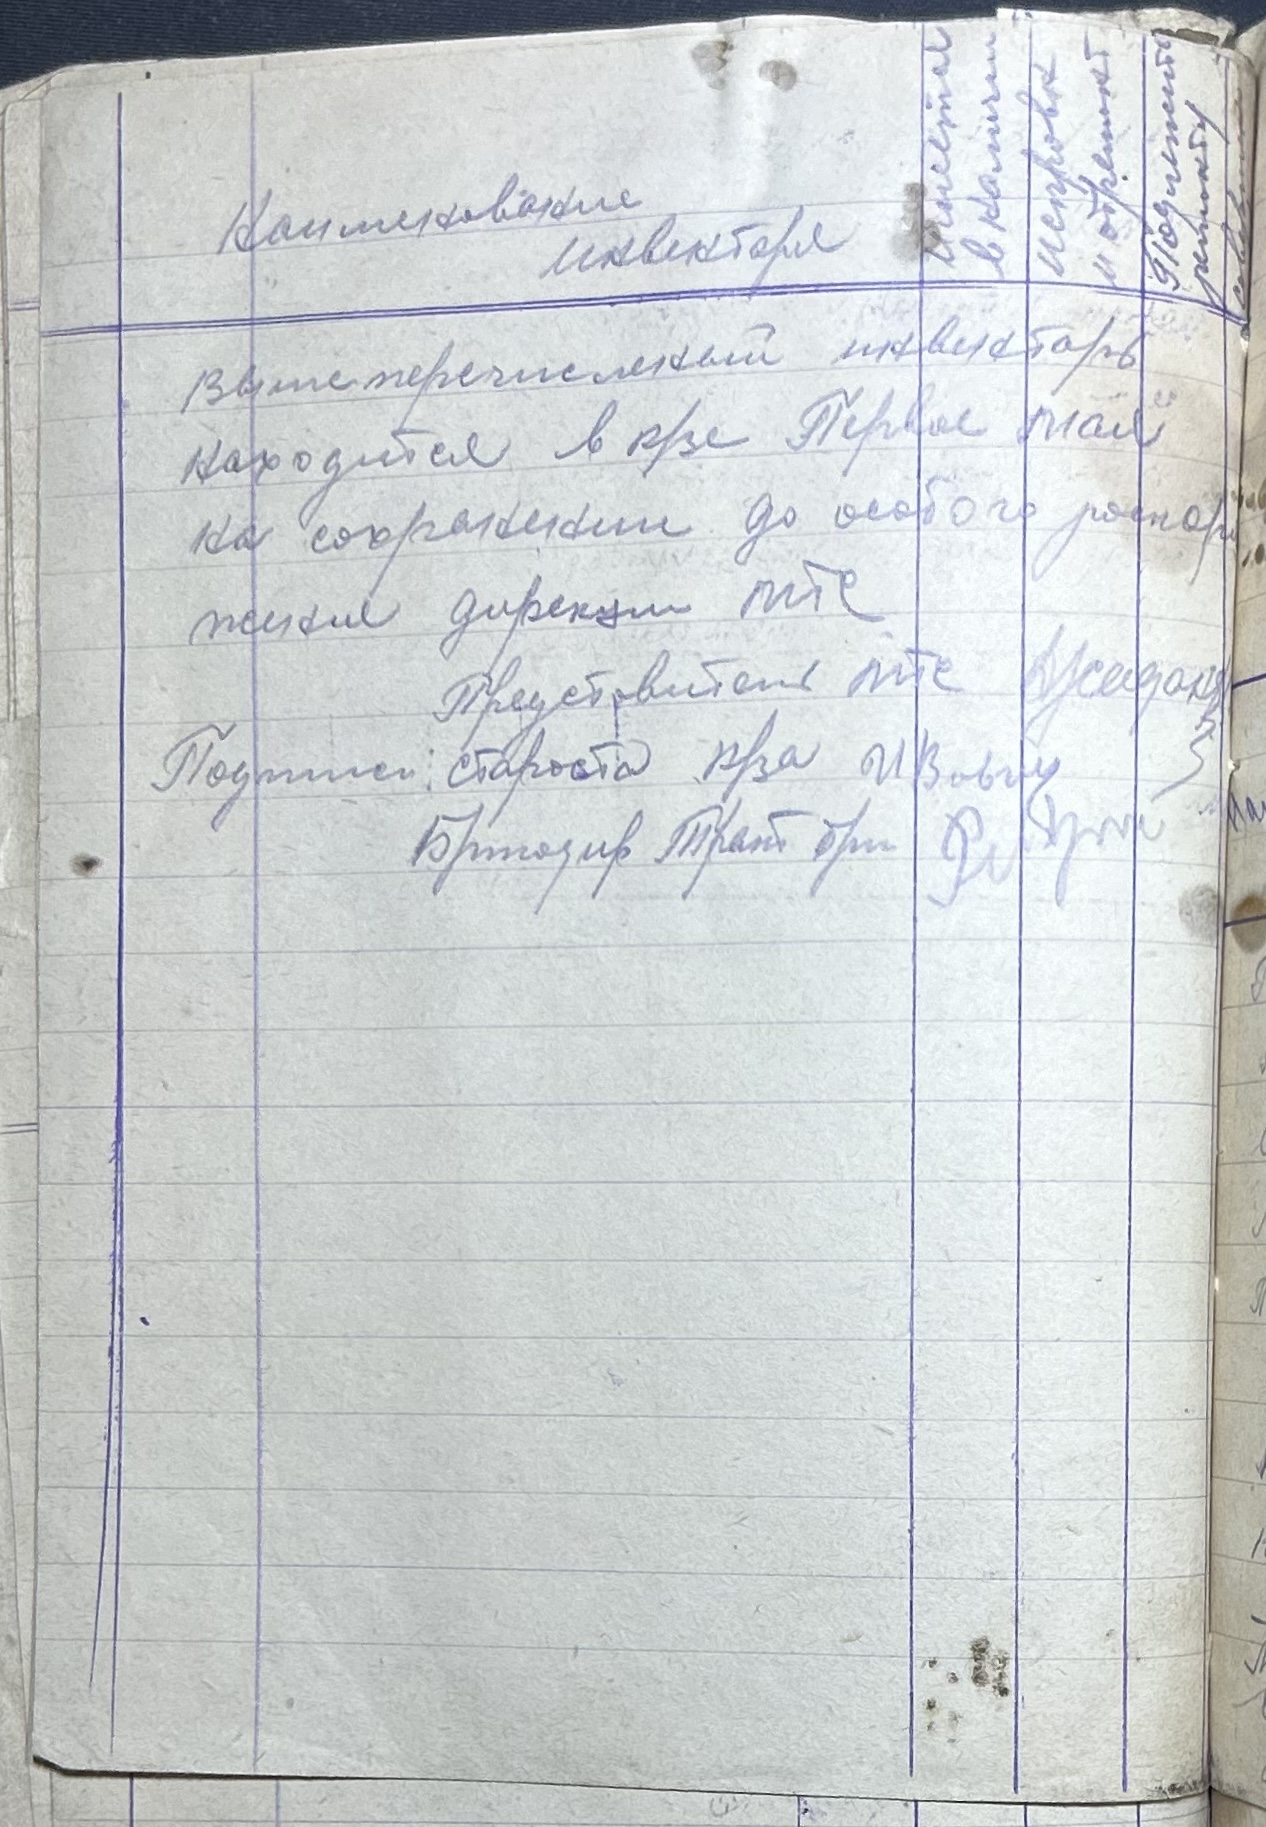 Наименование
инвентаря
Имеется
в наличии
исправн
и отремонт
Подлежит
ремонту
Вышеперечисленый инвентарь
находится в крзе Первое мая
на сохранении до особого распоря
жения дирекции МТС
Представитель МТС
Подписи: староста крза
Бригадир Тракт бри